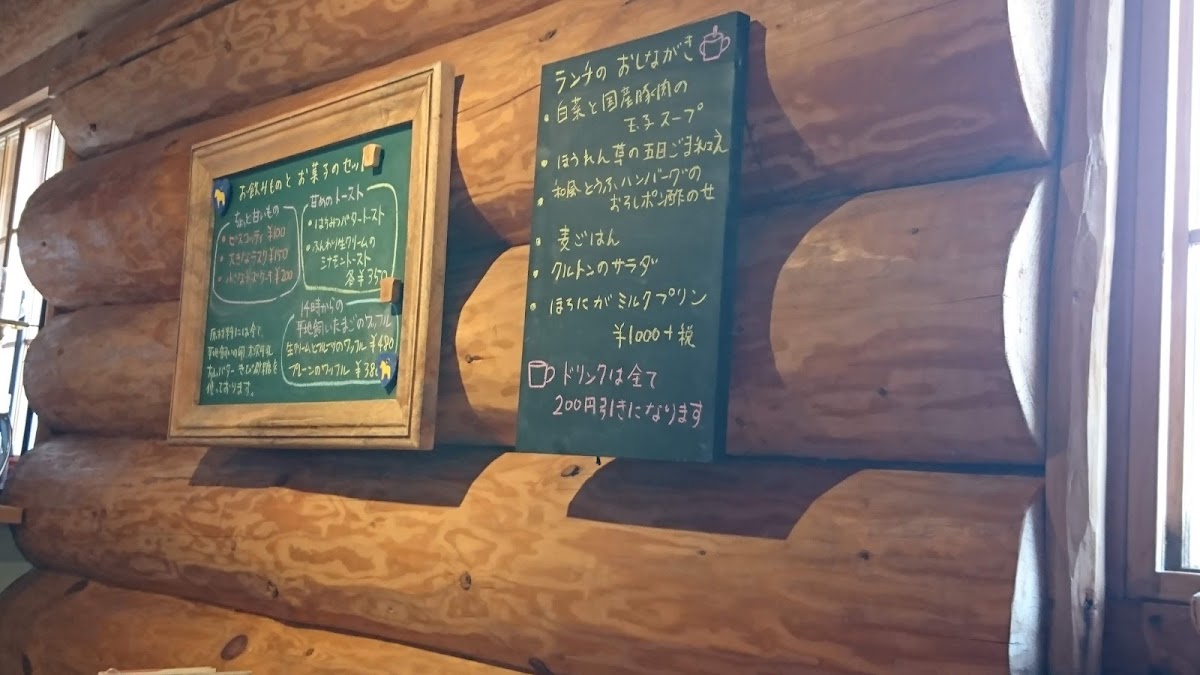 お飲みものとお菓子のセット
ちょっと甘いもの
・ビスコッティ ¥100
・大きなラスク ¥150
¥200
甘めのトースト
・はちみつバタートースト
・ふんわり生クリームの
シナモントースト
各¥350
14時からの
平地飼いたまごのワッフル
生クリームとフルーツのワッフル ¥480
プレーンのワッフル ¥380
原材料には全て、
使っております。
ランチの おしながき
・白菜と国産豚肉の
玉子スープ
・ほうれん草の五目ごま和え
・和風とうふハンバーグの
おろしポン酢のせ
・麦ごはん
・クルトンのサラダ
・ほろにがミルクプリン
¥1000+税
ドリンクは全て
200円引きになります